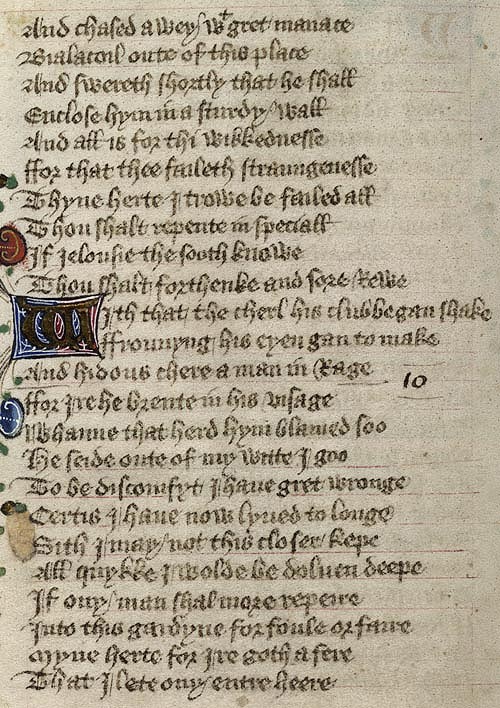 And chased awey wt gret manace
Bialacoil oute of this place
And swereth shortly that he shall
Enclose hym in a sturdy wall
And all is for thi wikkednesse
ffor that thee faileth straungenesse
Thyne herte I trowe be failed all
Thou shalt repente in speciall
If Jelousie the sooth knowe
Thou shalt forthenke and sore Rewe
With that the cherl his clubbe gan shake
ffrounyng his eyen gan to make
And hidous chere a man in Rage
10
ffor Ire he brente in his visage
Whanne that herd hym blamed soo
He seide oute of my witte I goo
To be discomfyt I haue gret wronge
Certis I haue now lyued to longe
Sith I may not this closer kepe
All quykke I wolde be doluen deepe
If ony man shal more repeire
Into this gardyne for foule or faire
Myne herte for Ire goth a fere
That I lete ony entre heere